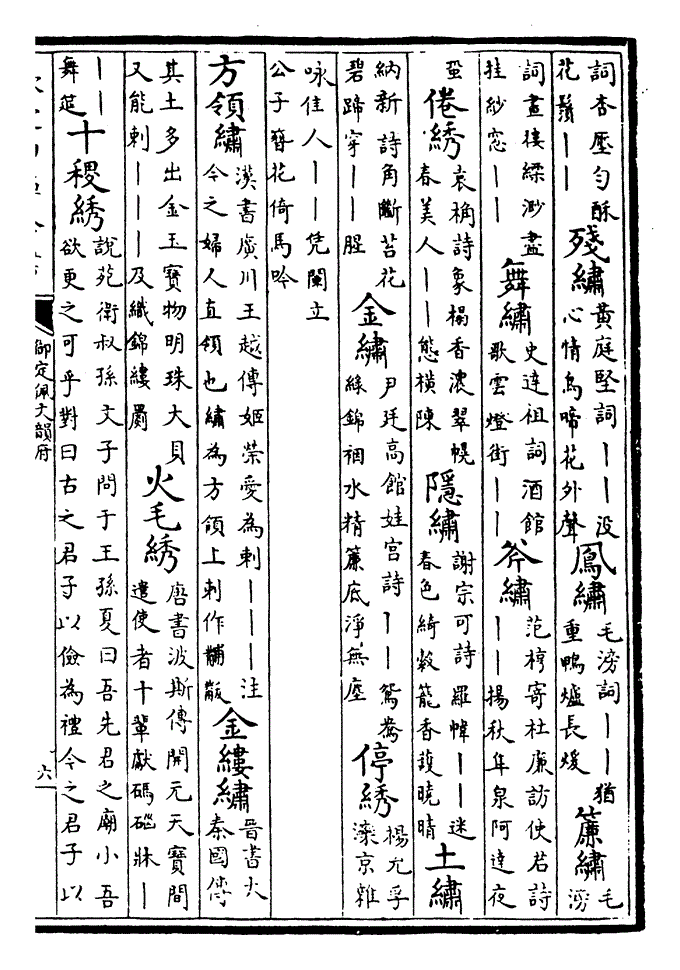 詞杏壓勻酥
花鬚——
殘繡
黃庭堅詞——没
心情鳥啼花外聲
鳳繡
毛滂詞——猶
重鴨爐長煖
簾繡
毛
滂
詞畫樓縹渺盡
挂紗窓——
舞繡
史達祖詞酒館
歌雲燈街——
斧繡
范梈寄杜廉訪使君詩
——揚秋隼泉阿達夜
蛩
倦綉
袁桷詩象榻香濃翠幌
春美人——態橫陳
隱繡
謝宗可詩羅幃——迷
春色綺縠籠香護曉晴
土繡
納新詩角斷苔花
碧蹄穿——腥
金繡
尹廷高館娃宮詩——鴛鴦
絲錦裀水精簾底淨無塵
停綉
楊允孚
灤京雜
咏佳人——凭闌立
公子簪花倚馬吟
方領繡
漢書廣川王越傳姬榮愛為刺———注
今之婦人直領也繡為方領上刺作黼黻
金縷繡
晋書大
秦國傳
其土多出金玉寶物明珠大貝
又能刺———及織錦縷罽
火毛綉
唐書波斯傳開元天寶間
遣使者十輩獻碼碯牀—
——
舞筵
十稷綉
說苑衛叔孫文子問于王孫夏曰吾先君之廟小吾
欲更之可乎對曰古之君子以儉為禮今之君子以
御定佩文韻府
六